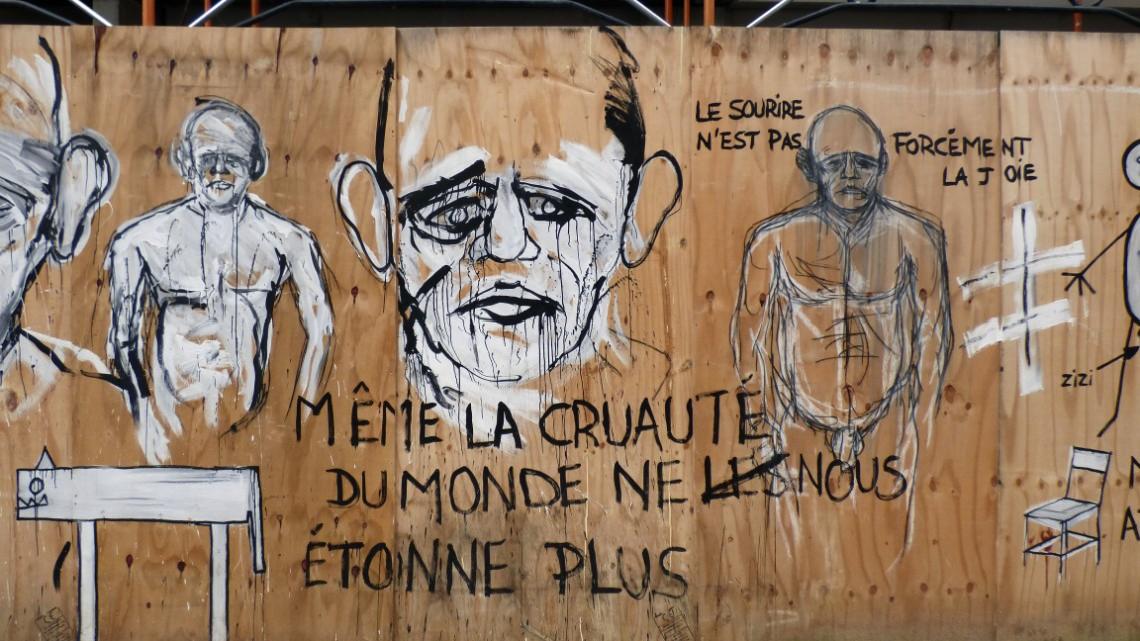 LE SOURIRE
N'EST PAS
FORCÉMENT
LA JOIE
zizi
MÊME LA CRUAUTÉ
DU MONDE NE LES NOUS
ÉTONNE PLUS